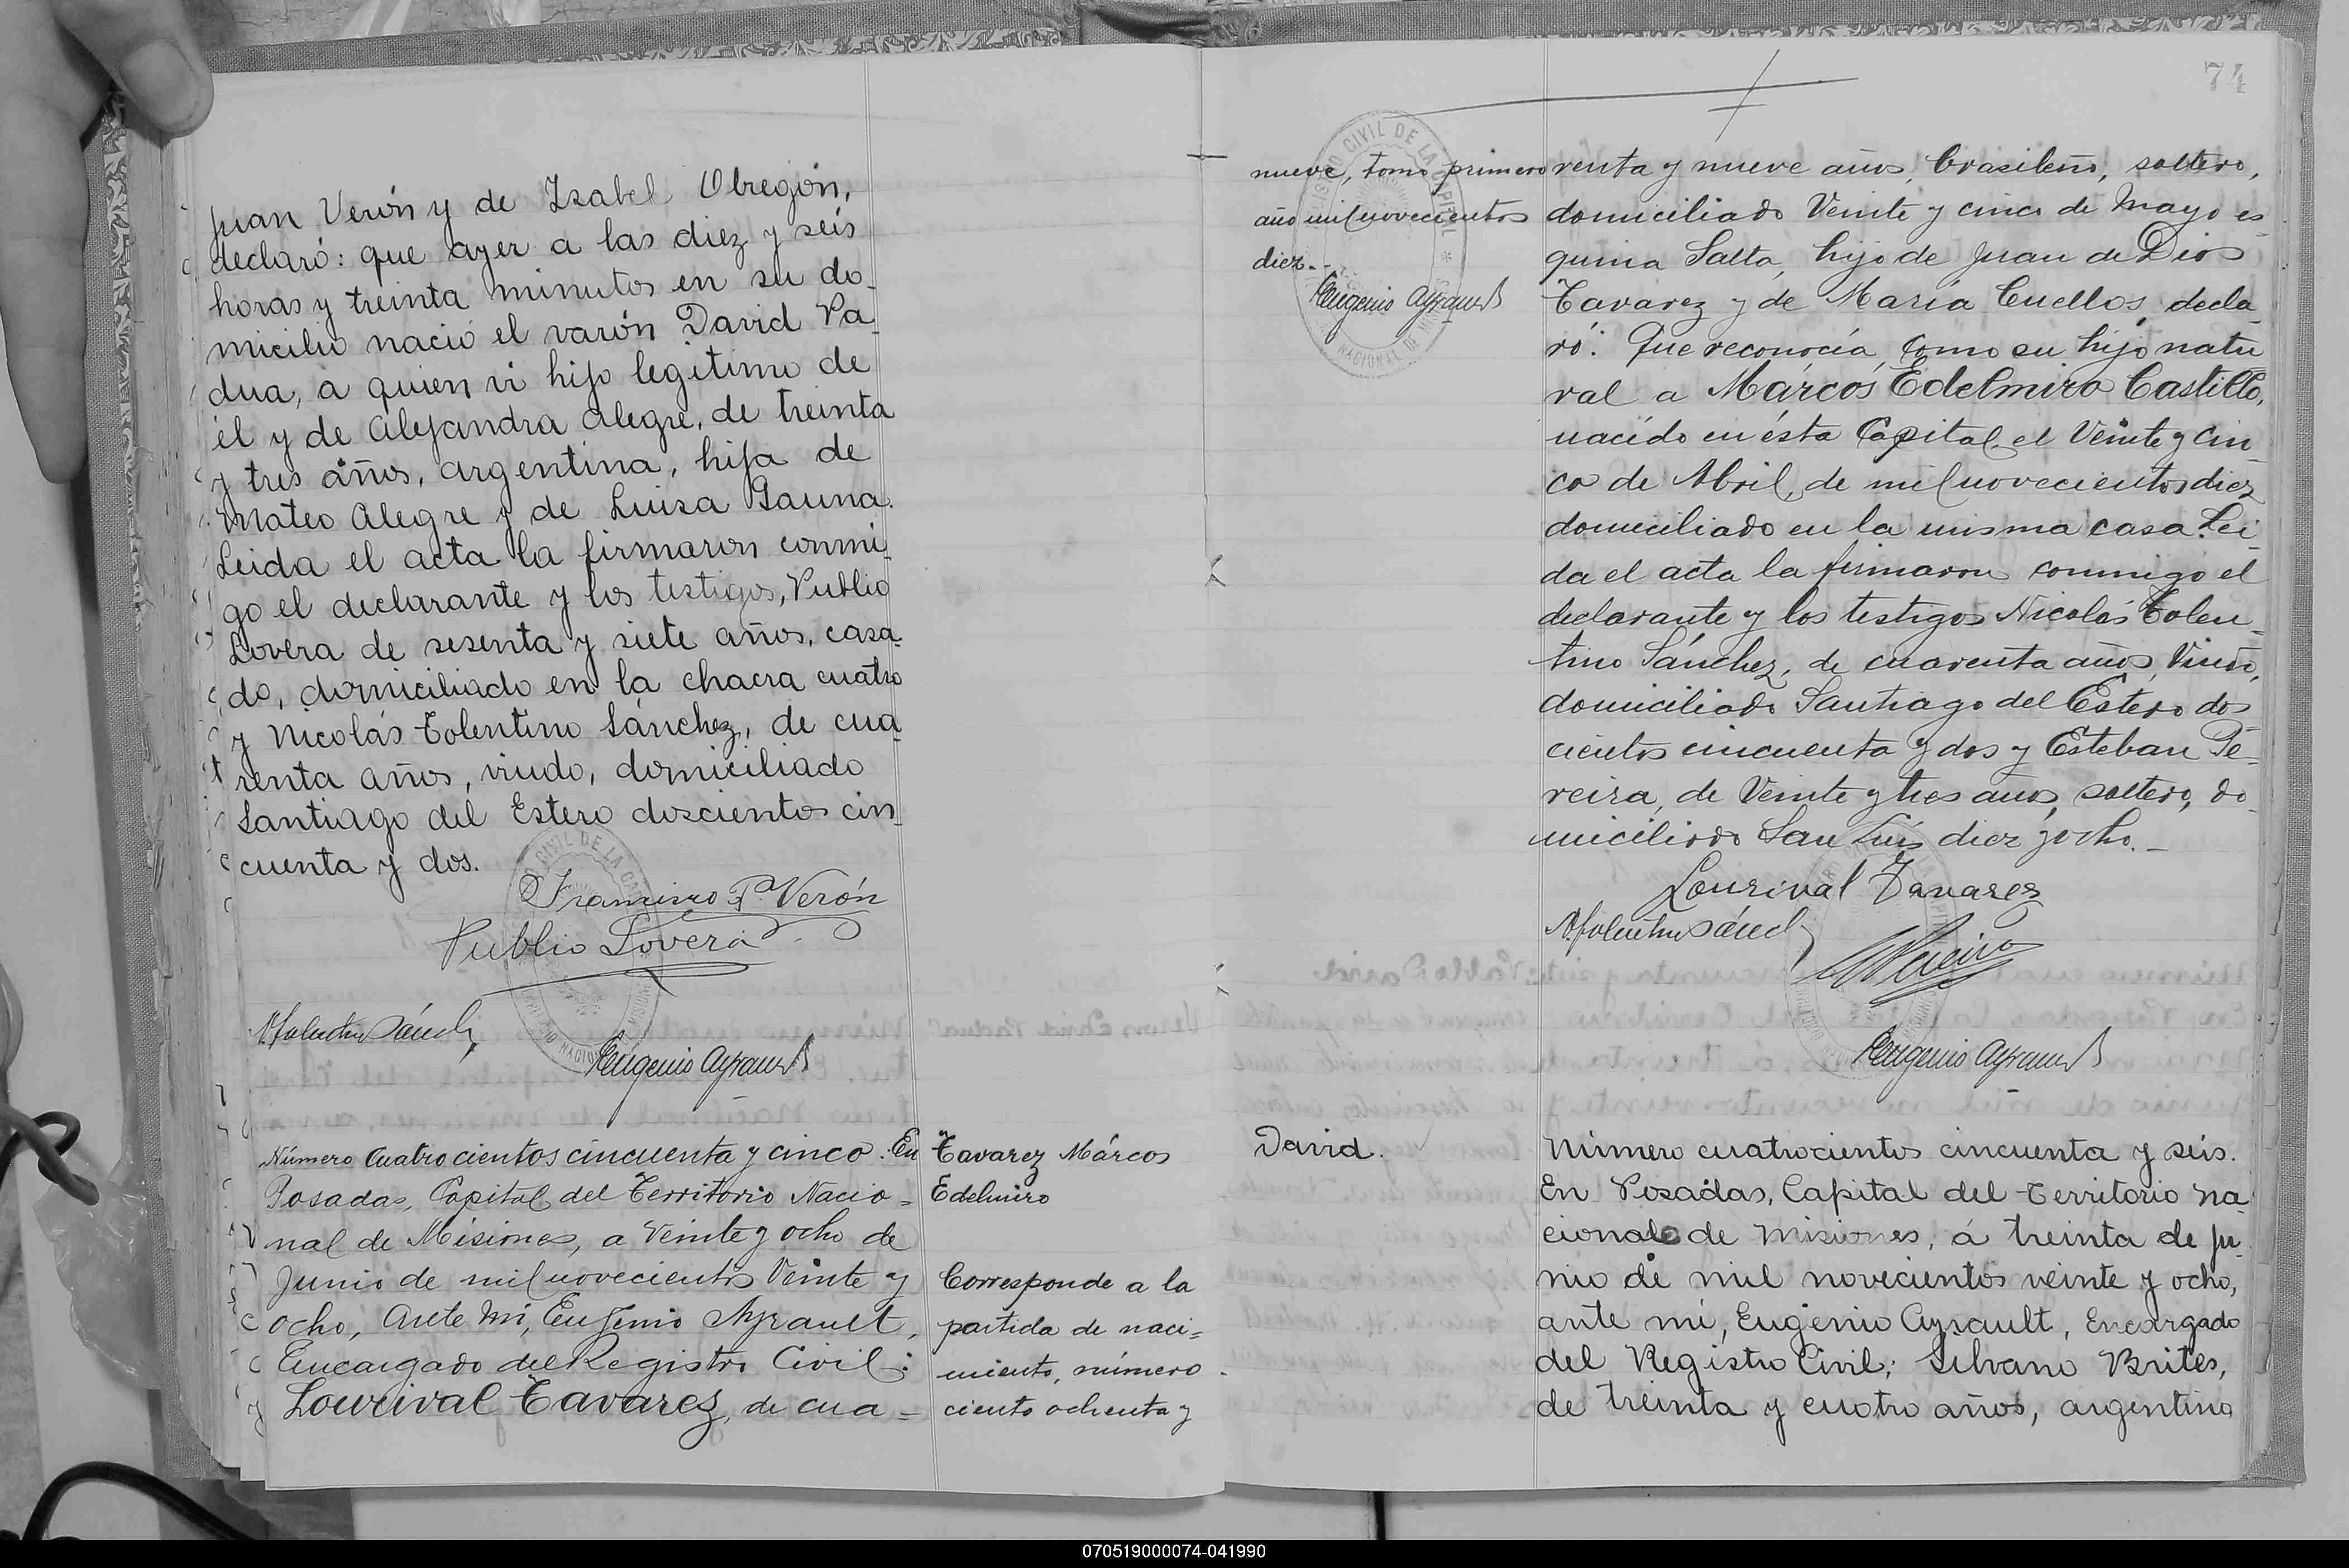 Juan Verón y de Isabel Obregón,
declaró: que ayer a las diez y seis
horas y treinta minutos en su do-
micilio nació el varón David Pa-
dua, a quien vi hijo legítimo de
él y de Alejandra Alegre, de treinta
y tres años, argentina, hija de
Mateo Alegre y de Luisa Gauna.
Leida el acta la firmaron conmi-
go el declarante y los testigos, Publio
Lovera de sesenta y siete años, casa-
do, domiciliado en la chacra cuatro
y Nicolás Tolentino Sánchez, de cua-
renta años, viudo, domiciliado
Santiago del Estero doscientos cin-
cuenta y dos.
Francisco P. Verón
Publio Lovera
N. Tolentino Sánch
Eugenio Ayrault
Número Cuatrocientos cincuenta y cinco. En
Posadas, Capital del Territorio Nacio=
nal de Misiones, a Veinte y ocho de
Junio de mil novecientos Veinte y
ocho, Ante Mí, Eugenio Ayrault,
Encargado del Registro Civil:
Lourival Tavarez, de cua=
Tavarez Márcos
Edelmiro
Corresponde a la
partida de naci=
miento, número
ciento ochenta y
74
nueve, tomo primero
año mil novecientos
diez.-
Eugenio Ayrault
renta y nueve años, brasileño, soltero,
domiciliado Veinte y cinco de Mayo es-
quina Salta, hijo de Juan de Dios
Tavarez y de María Cuellos, decla-
ró: Que reconocía, como su hijo natu-
ral a Márcos Edelmiro Castillo,
nacido en ésta Capital, el Veinte y cin-
co de Abril, de mil novecientos diez
domiciliado en la misma casa. Lei-
da el acta la firmaron conmigo el
declarante y los testigos Nicolás Tolen-
tino Sánchez, de cuarenta años, Viudo,
domiciliado Santiago del Estero dos-
cientos cincuenta y dos y Esteban Pe-
reira, de Veinte y tres años, soltero, do-
miciliado San Luis diez y ocho.-
Lourival Tavarez
N. Tolentino Sánch
Pereira
Eugenio Ayrault
David.
Número cuatrocientos cincuenta y seis.
En Posadas, Capital del Territorio Na-
cional de Misiones, á treinta de ju-
nio de mil novecientos veinte y ocho,
ante mí, Eugenio Ayrault, Encargado
del Registro Civil; Silvano Brites,
de treinta y cuatro años, argentino
070519000074-041990